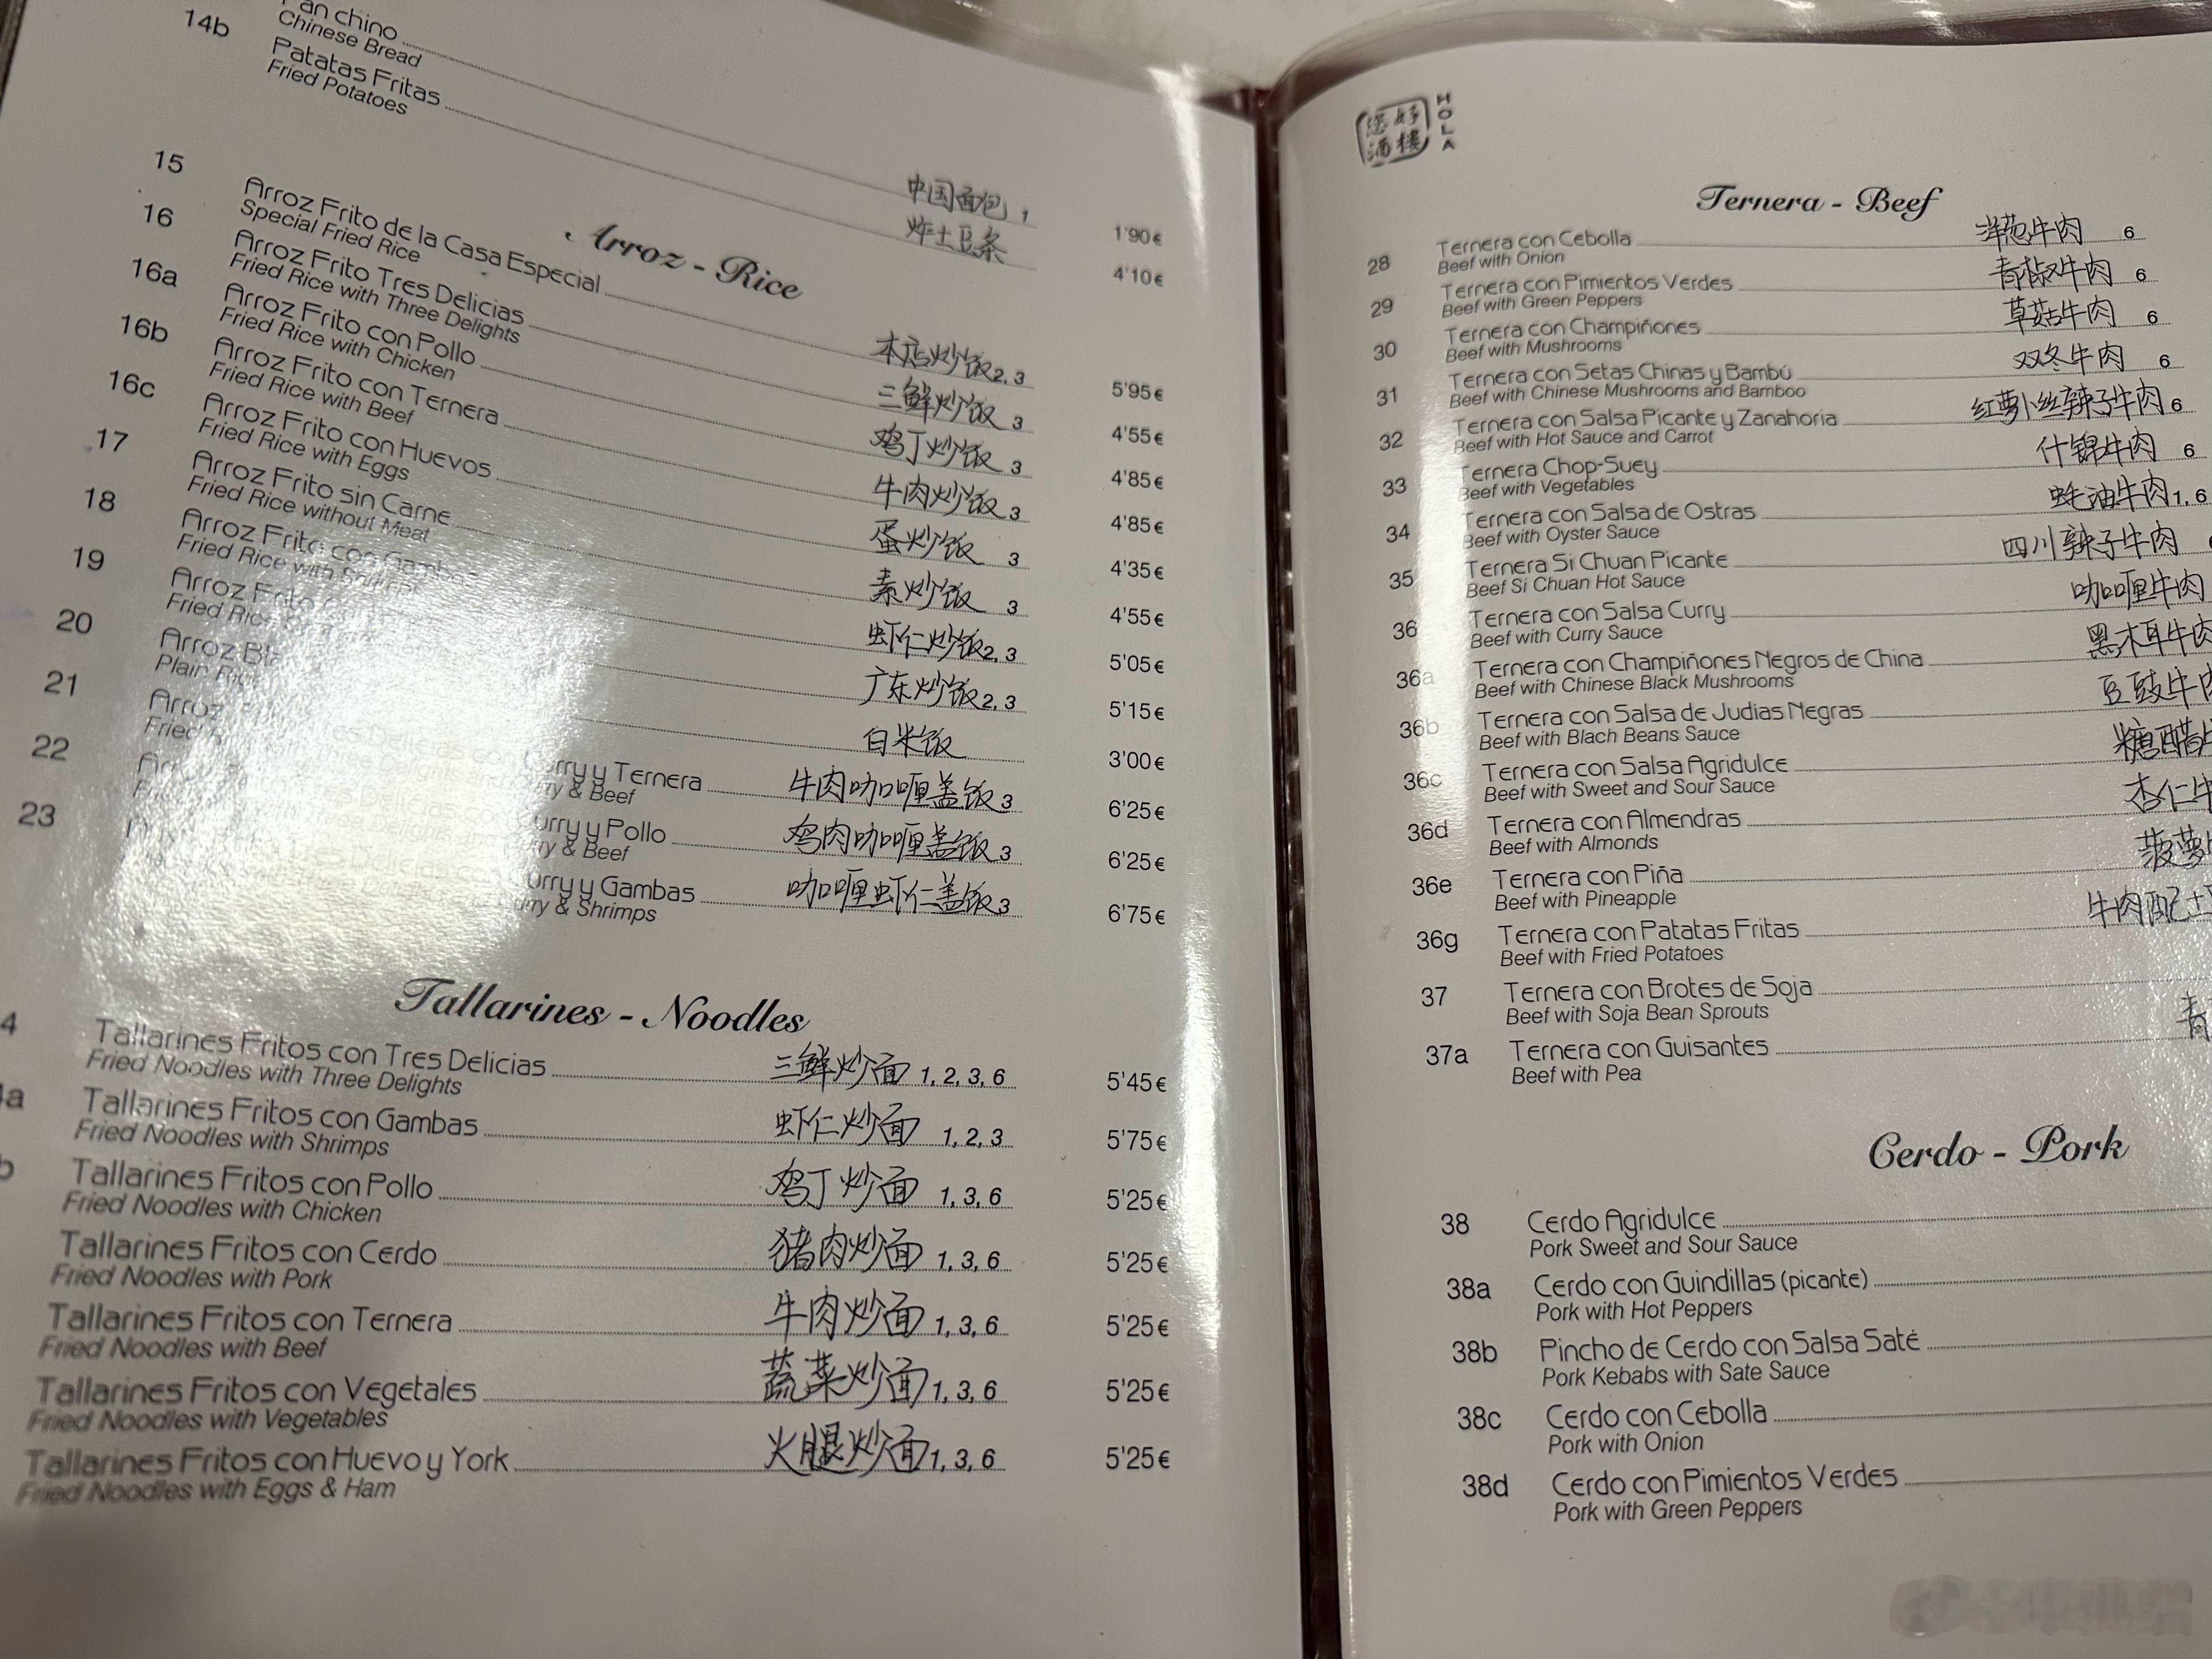 Pan chino 中国面包 1 1'90€
Chinese Bread
14b Patatas Fritas 炸土豆条 4'10€
Fried Potatoes
Arroz - Rice
15 Arroz Frito de la Casa Especial 本店炒饭 2, 3 5'95€
Special Fried Rice
16 Arroz Frito Tres Delicias 三鲜炒饭 3 4'55€
Fried Rice with Three Delights
16a Arroz Frito con Pollo 鸡丁炒饭 3 4'85€
Fried Rice with Chicken
16b Arroz Frito con Ternera 牛肉炒饭 3 4'85€
Fried Rice with Beef
16c Arroz Frito con Huevos 蛋炒饭 3 4'35€
Fried Rice with Eggs
17 Arroz Frito sin Carne 素炒饭 3 4'55€
Fried Rice without Meat
18 Arroz Frito con Gambas 虾仁炒饭 2, 3 5'05€
Fried Rice with Shrimps
19 Arroz Frito 广东炒饭 2, 3 5'15€
Fried Rice
20 Arroz 白米饭 3'00€
Plain
21 Arroz Delicias Curry y Ternera 牛肉咖喱盖饭 3 6'25€
Fried Delights Curry & Beef
22 Curry y Pollo 鸡肉咖喱盖饭 3 6'25€
Curry & Beef
23 Curry y Gambas 咖喱虾仁盖饭 3 6'75€
Curry & Shrimps
Tallarines - Noodles
4 Tallarines Fritos con Tres Delicias 三鲜炒面 1, 2, 3, 6 5'45€
Fried Noodles with Three Delights
a Tallarines Fritos con Gambas 虾仁炒面 1, 2, 3 5'75€
Fried Noodles with Shrimps
b Tallarines Fritos con Pollo 鸡丁炒面 1, 3, 6 5'25€
Fried Noodles with Chicken
Tallarines Fritos con Cerdo 猪肉炒面 1, 3, 6 5'25€
Fried Noodles with Pork
Tallarines Fritos con Ternera 牛肉炒面 1, 3, 6 5'25€
Fried Noodles with Beef
Tallarines Fritos con Vegetales 蔬菜炒面 1, 3, 6 5'25€
Fried Noodles with Vegetables
Tallarines Fritos con Huevo y York 火腿炒面 1, 3, 6 5'25€
Fried Noodles with Eggs & Ham
您好酒楼 HOLA
Ternera - Beef
28 Ternera con Cebolla 洋葱牛肉 6
Beef with Onion
29 Ternera con Pimientos Verdes 青椒牛肉 6
Beef with Green Peppers
30 Ternera con Champiñones 草菇牛肉 6
Beef with Mushrooms
31 Ternera con Setas Chinas y Bambú 双冬牛肉 6
Beef with Chinese Mushrooms and Bamboo
32 Ternera con Salsa Picante y Zanahoria 红萝卜丝辣子牛肉 6
Beef with Hot Sauce and Carrot
33 Ternera Chop-Suey 什锦牛肉 6
Beef with Vegetables
34 Ternera con Salsa de Ostras 蚝油牛肉 1, 6
Beef with Oyster Sauce
35 Ternera Si Chuan Picante 四川辣子牛肉
Beef Si Chuan Hot Sauce
36 Ternera con Salsa Curry 咖喱牛肉
Beef with Curry Sauce
36a Ternera con Champiñones Negros de China 黑木耳牛肉
Beef with Chinese Black Mushrooms
36b Ternera con Salsa de Judias Negras 豆豉牛肉
Beef with Blach Beans Sauce
36c Ternera con Salsa Agridulce 糖醋牛
Beef with Sweet and Sour Sauce
36d Ternera con Almendras 杏仁牛
Beef with Almonds
36e Ternera con Piña 菠萝
Beef with Pineapple
36g Ternera con Patatas Fritas 牛肉配土
Beef with Fried Potatoes
37 Ternera con Brotes de Soja
Beef with Soja Bean Sprouts
37a Ternera con Guisantes 青
Beef with Pea
Cerdo - Pork
38 Cerdo Agridulce
Pork Sweet and Sour Sauce
38a Cerdo con Guindillas (picante)
Pork with Hot Peppers
38b Pincho de Cerdo con Salsa Saté
Pork Kebabs with Sate Sauce
38c Cerdo con Cebolla
Pork with Onion
38d Cerdo con Pimientos Verdes
Pork with Green Peppers